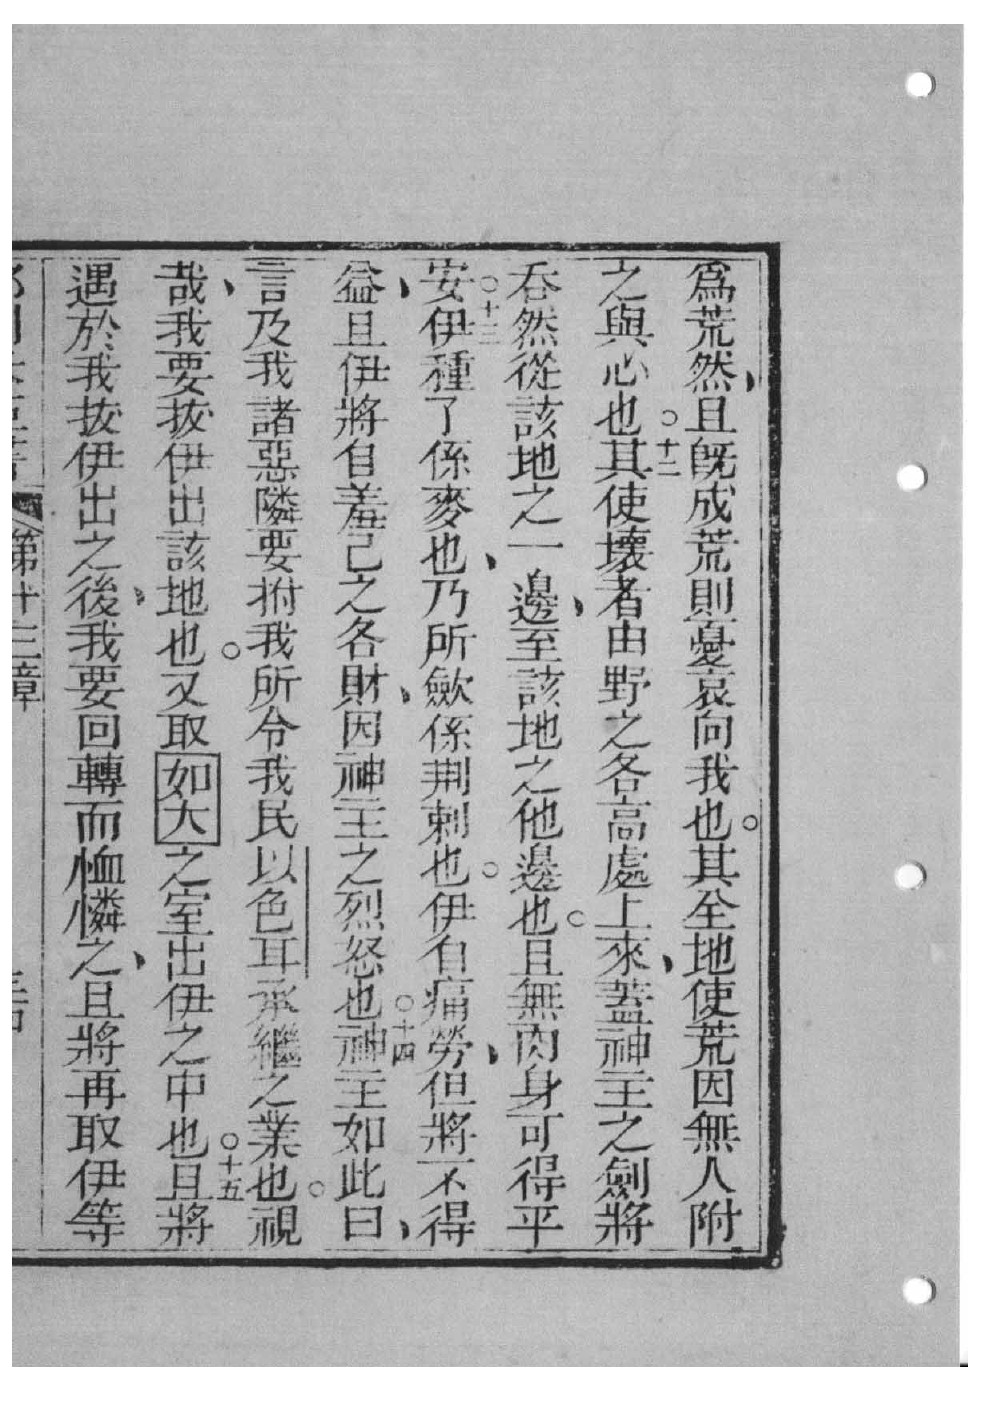 爲荒然、且旣成荒則憂哀向我也。其全地使荒因無人附
之與心也。十二其使壞者由野之各高處上來、蓋神主之劍將
吞然從該地之一邊、至該地之他邊也。且無肉身可得平
安。十三伊種了係麥也、乃所歛係荆刺也。伊自痛勞、但將不得
益、且伊將自羞己之各財、因神主之烈怒也。十四神主如此曰、
言及我諸惡隣要拊我所令我民以色耳承繼之業也。視
哉、我要拔伊出該地也。又取如大之室出伊之中也。十五且將
遇於我拔伊出之後、我要回轉而恤憐之、且將再取伊等
第十三章